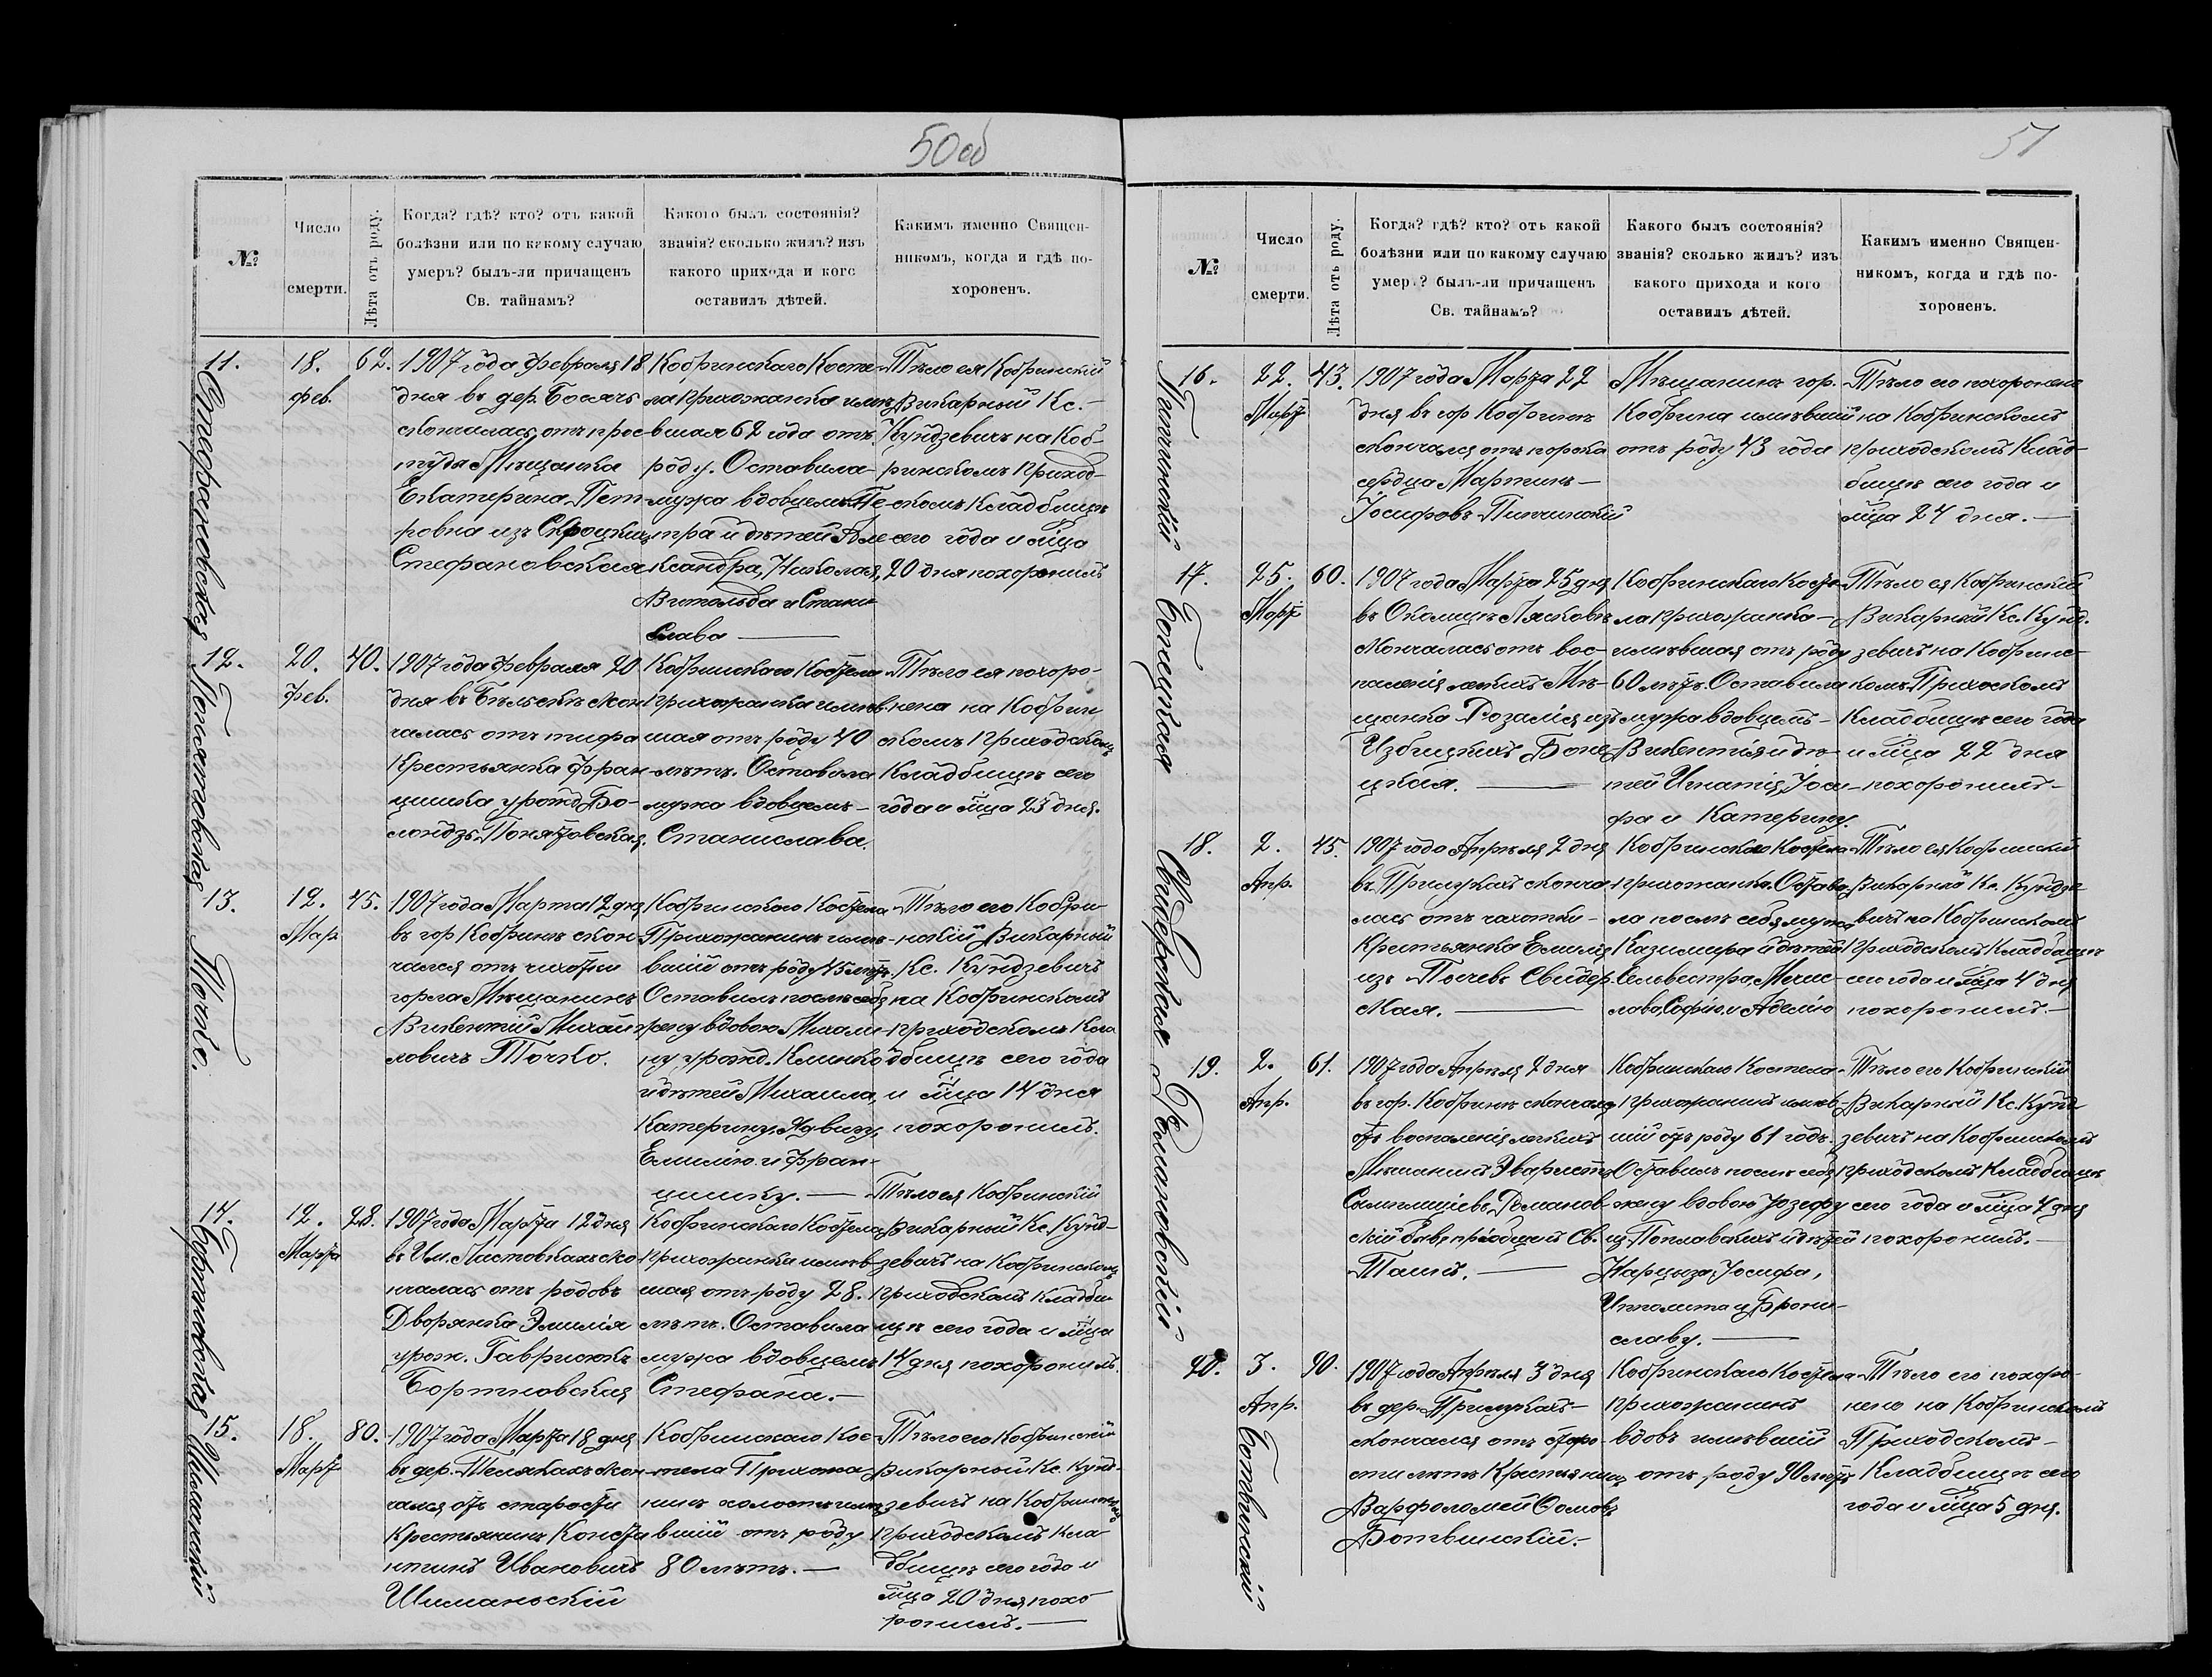 50об
№
Число
смерти.
Лѣта отъ роду.
Когда? гдѣ? кто? отъ какой
болѣзни или по какому случаю
умеръ? былъ-ли причащенъ
Св. тайнамъ?
Какого былъ состоянія?
званія? сколько жилъ? изъ
какого прихода и кого
оставилъ дѣтей.
Какимъ именно Священ-
никомъ, когда и гдѣ по-
хороненъ.
11.
Стефановская
18.
фев.
62.
1907 года Февраля 18
дня въ дер. Босячъ
скончалась отъ прос-
туды Мѣщанка
Екатерина Пет-
ровна изъ Скроцкихъ
Стефановская
Кобринскаго Косте-
ла Прихожанка имѣ-
вшая 62 года отъ
роду. Оставила
мужа вдовцемъ Пе-
тра и дѣтей Але-
ксандра, Николая,
Витольда и Стани-
слава
Тѣло ея Кобринскій
Викарный Кс.
Кундзевичъ на Коб-
ринскомъ приход-
скомъ кладбищѣ
сего года и м̃ца
20 дня похоронилъ
12.
Понятовская
20.
фев.
40.
1907 года Февраля 20
дня въ Бѣльскѣ скон-
чалась отъ тифа
Крестьянка Фран-
цишка урожд. Бо-
лондзь Понятовская.
Кобринскаго Костела
Прихожанка имѣв-
шая отъ роду 40
лѣтъ. Оставила
мужа вдовцемъ
Станислава.
Тѣло ея похоро-
нена на Кобрин-
скомъ Приходскомъ
Кладбищѣ сего
года и м̃ца 23 дня.
13.
Точко.
12.
Мар
45.
1907 года Марта 12 дня
въ гор Кобринѣ скон-
чался отъ чахотки
горла Мѣщанинъ
Викентій Михай-
ловичъ Точко.
Кобринскаго Костела
Прихожанинъ имѣ-
вшій отъ роду 45 лѣтъ.
Оставилъ послѣ себя
жену вдовою Михали-
ну урожд. Климко
и дѣтей Михаила,
Катерину, Ядвигу,
Емилію и Фран-
цишку.
Тѣло его Кобри-
нскій Викарный
Кс. Кундзевичъ
на Кобринскомъ
приходскомъ кла-
дбищѣ сего года
и м̃ца 14 дня
похоронилъ.
14.
Бортновская
12.
Марта
28.
1907 года Марта 12 дня
въ Им. Листовкахъ ско-
нчалась отъ родовъ
Дворянка Эмилія
урож. Гаврионкъ
Бортновская
Кобринскаго Костела
прихожанка имѣв-
шая отъ роду 28.
лѣтъ. Оставила
мужа вдовцемъ
Стефана.
Тѣло ея Кобринскій
Викарный Кс. Кунд-
зевичъ на Кобринскомъ
приходскомъ кладби-
щѣ сего года и м̃ца
14 дня похоронилъ.
15.
Шиманскій
18.
Март
80.
1907 года Марта 18 дня
въ дер. Шелякахъ скон-
чался отъ старости
Крестьянинъ Конста-
нтинъ Ивановичъ
Шиманьскій
Кобринскаго Кос-
тела Прихожа-
нинъ холостъ имѣ-
вшій отъ роду
80 лѣтъ.
Тѣло его Кобринскій
Викарный Кс. Кунд-
зевичъ на Кобринскомъ
приходскомъ кла-
дбищѣ сего года и
м̃ца 20 дня похо-
ронилъ.
51
№
Число
смерти.
Лѣта отъ роду.
Когда? гдѣ? кто? отъ какой
болѣзни или по какому случаю
умер ? былъ-ли причащенъ
Св. тайнамъ?
Какого былъ состоянія?
званія? сколько жилъ? изъ
какого прихода и кого
оставилъ дѣтей.
Какимъ именно Священ-
никомъ, когда и гдѣ по-
хороненъ.
16.
Пинчинскій
22.
Март
43.
1907 года Марта 22
дня въ гор Кобринѣ
скончался отъ порока
сердца Мартинъ
Іосифовъ Пинчинскій
Мѣщанинъ гор.
Кобрина имѣвшій
отъ роду 43 года
Тѣло его похоронено
на Кобринскомъ
приходскомъ клад-
бищѣ сего года и
м̃ца 24 дня.
17.
Бонецкая
25.
Март
60.
1907 года Марта 25 дня
въ Околицѣ Лясковѣ
скончалась отъ вос-
паленія легкихъ Мѣ-
щанка Розалія изъ
Избицкихъ Боне-
цкая.
Кобринскаго Косте-
ла прихожанка
имѣвшая отъ роду
60 лѣтъ. Оставила
мужа вдовцемъ
Викентія и дѣ-
тей Игнатія, Іоси-
фа и Катерину.
Тѣло ея Кобринскій
Викарный Кс. Кунд-
зевичъ на Кобринс-
комъ Прихоскомъ
Кладбищѣ сего года
и м̃ца 22 дня
похоронилъ
18.
Свидерская
2.
Апр.
45.
1907 года Апрѣля 2 дня
въ Прилукахъ сконча-
лась отъ чахотки
крестьянка Емилія
изъ Свидер-
ская.
Кобринскаго Костела
прихожанка. Остави-
ла послѣ себя мужа
Казимира и дѣтей
Сельвестра, Мечис-
лава, Софію и Аделію
Тѣло ея Кобринскій
Викарный Кс. Кундзе-
вичъ на Кобринскомъ
Приходскомъ Кладбищѣ
сего года и м̃ца 4 дня
похоронилъ.
19.
Романовскій
2.
Апр.
61.
1907 года Апрѣля 2 дня
въ гор. Кобринѣ скончался
отъ воспаленія легкихъ
Мѣщанинъ Эваристь
Романов-
скій бывъ пріобщенъ Св.
Таинъ.
Кобринскаго Костела
прихожанинъ имѣв-
шій отъ роду 61 годъ.
Оставилъ послѣ себя
жену вдовою Юзефу
из Поплавскихъ и дѣтей
Нарцыза, Іосифа,
Ипполита и Брони-
славу.
Тѣло его Кобринскій
Викарный Кс. Кунд-
зевичъ на Кобринскомъ
приходскомъ кладбищѣ
сего года и м̃ца 4 дня
похоронилъ.
20.
Ботвинскій
3.
Апр.
90.
1907 года Апрѣля 3 дня
въ дер. Прилукахъ
скончался отъ старо-
сти лѣтъ Крестьянинъ
Варфоломей Ѳомовъ
Ботвинскій.
Кобринскаго Костела
прихожанинъ
вдовъ имѣвшій
отъ роду 90 лѣтъ
Тѣло его похоро-
нено на Кобринскомъ
Приходскомъ
Кладбищѣ сего
года и м̃ца 5 дня.